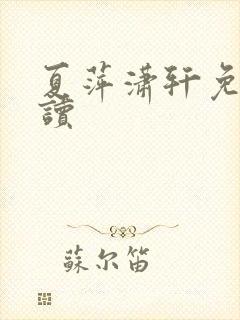 夏萍潇轩免
讀
蘇尔笛